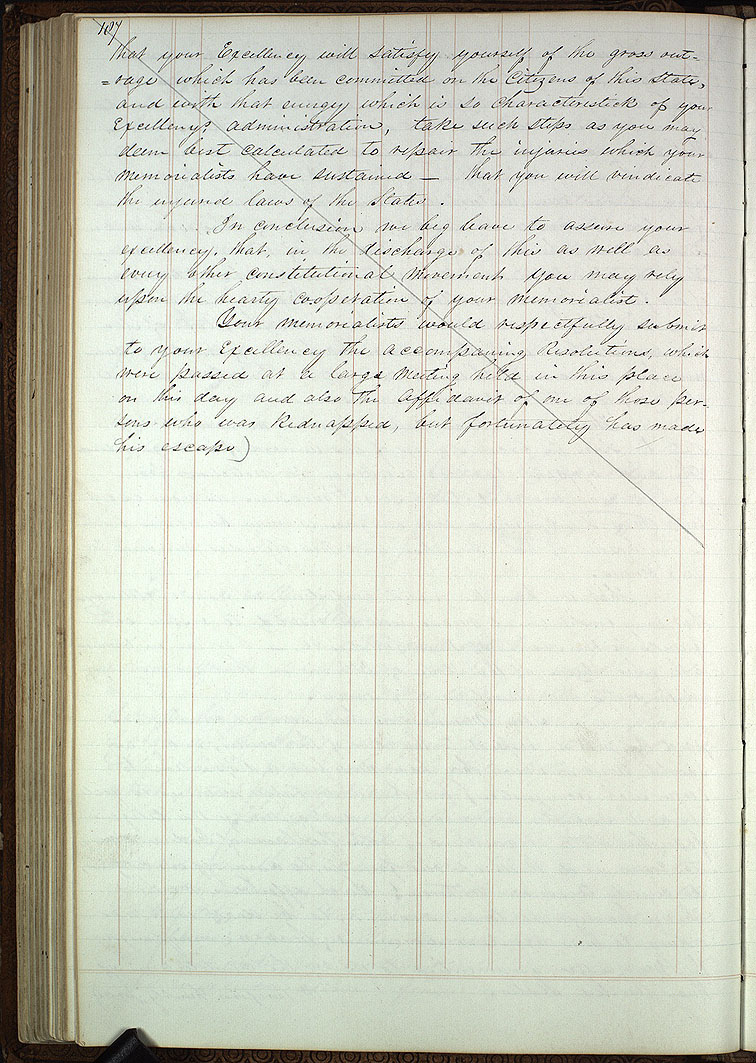 187
that your Excellency will satisfy yourself of the gross out-
=rage which has been committed on the Citizens of this State,
and with that energy which is so characteristick of your
Excellencys administration, take such steps as you may
deem best calculated to repair the injuries which your
memorialists have sustained — that you will vindicate
the injured laws of the State.
In conclusion we beg leave to assure your
excellency. that, in the discharge of this as well as
every other constitutional movement you may rely
upon the hearty cooperation of your memorialist.
Your memorialists would respectfully submit
to your Excellency the accompaning Resolutions, which
were passed at a large Meeting held in this place
on this day and also the affidavit of one of those per-
sons who was Kidnapped, but fortunately has made
his escape)